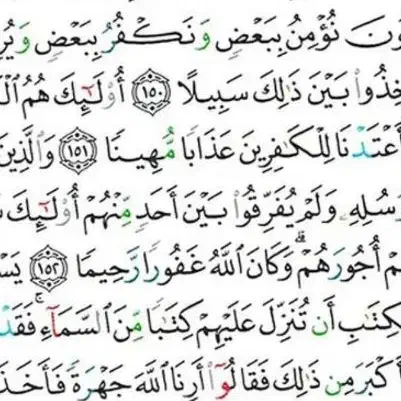 ونَ نُؤْمِنُ بِبَعْضٍ وَنَكْفُرُ بِبَعْضٍ وَيُرِ
خِذُوا۟ بَيْنَ ذَٰلِكَ سَبِيلًا ١٥٠ أُو۟لَـٰٓئِكَ هُمُ ٱلْـ
أَعْتَدْنَا لِلْكَـٰفِرِينَ عَذَابًا مُّهِينًا ١٥١ وَٱلَّذِينَ
رُسُلِهِۦ وَلَمْ يُفَرِّقُوا۟ بَيْنَ أَحَدٍ مِّنْهُمْ أُو۟لَـٰٓئِكَ سَـ
ـمْ أُجُورَهُمْ ۗ وَكَانَ ٱللَّهُ غَفُورًا رَّحِيمًا ١٥٢ يَسْـ
كِتَـٰبِ أَن تُنَزِّلَ عَلَيْهِمْ كِتَـٰبًا مِّنَ ٱلسَّمَآءِ ۚ فَقَدْ
أَكْبَرَ مِن ذَٰلِكَ فَقَالُوٓا۟ أَرِنَا ٱللَّهَ جَهْرَةً فَأَخَذَ